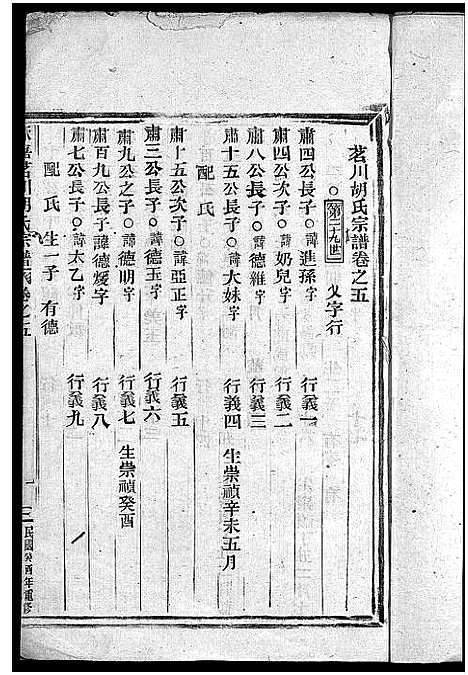 茗川胡氏宗譜卷之五
第二九世 父字行
肅四公長子諱進孫字 行義一
肅四公次子諱奶兒字 行義二
肅八公長子諱 字 行義三
肅十五公長子諱大妹字 行義四 生崇禎辛未五月
配 氏
肅十五公次子諱亞正字 行義五
肅三公長子諱德玉字 行義六
肅九公之子諱德明字 行義七 生崇禎癸酉
肅百九公長子諱德煖字 行義八
肅七公長子諱太乙字 行義九
配 氏 生一子 有德
茗川胡氏宗譜 卷之五
民國癸酉年重修